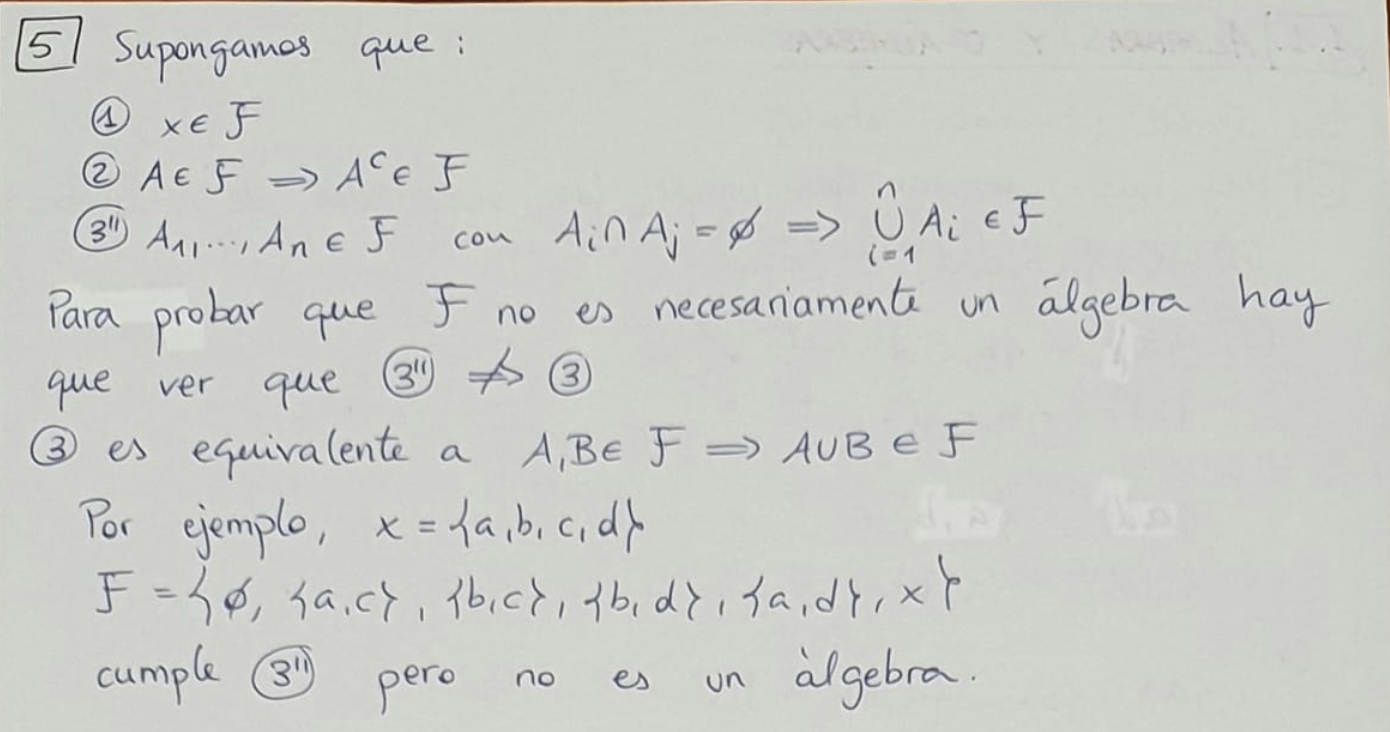 5 Supongamos que:
① x ∈ F
② A ∈ F ⟹ Aᶜ ∈ F
③'' A₁,..., Aₙ ∈ F con Aᵢ ∩ Aⱼ = ∅ ⟹ ⋃ᵢ₌₁ⁿ Aᵢ ∈ F
Para probar que F no es necesariamente un álgebra hay
que ver que ③'' ⇏ ③
③ es equivalente a A, B ∈ F ⟹ A ∪ B ∈ F
Por ejemplo, x = {a, b, c, d}
F = {∅, {a, c}, {b, c}, {b, d}, {a, d}, x}
cumple ③'' pero no es un àlgebra.